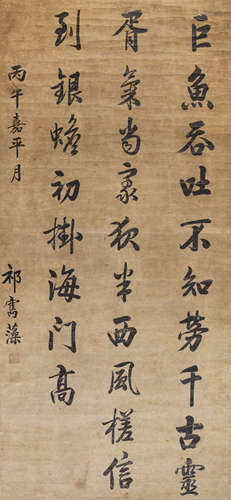 巨魚吞吐不知勞千古靈
胥氣尚豪狄半西風槎信
到銀蟾初掛海门高
丙午嘉平月
祁寯藻